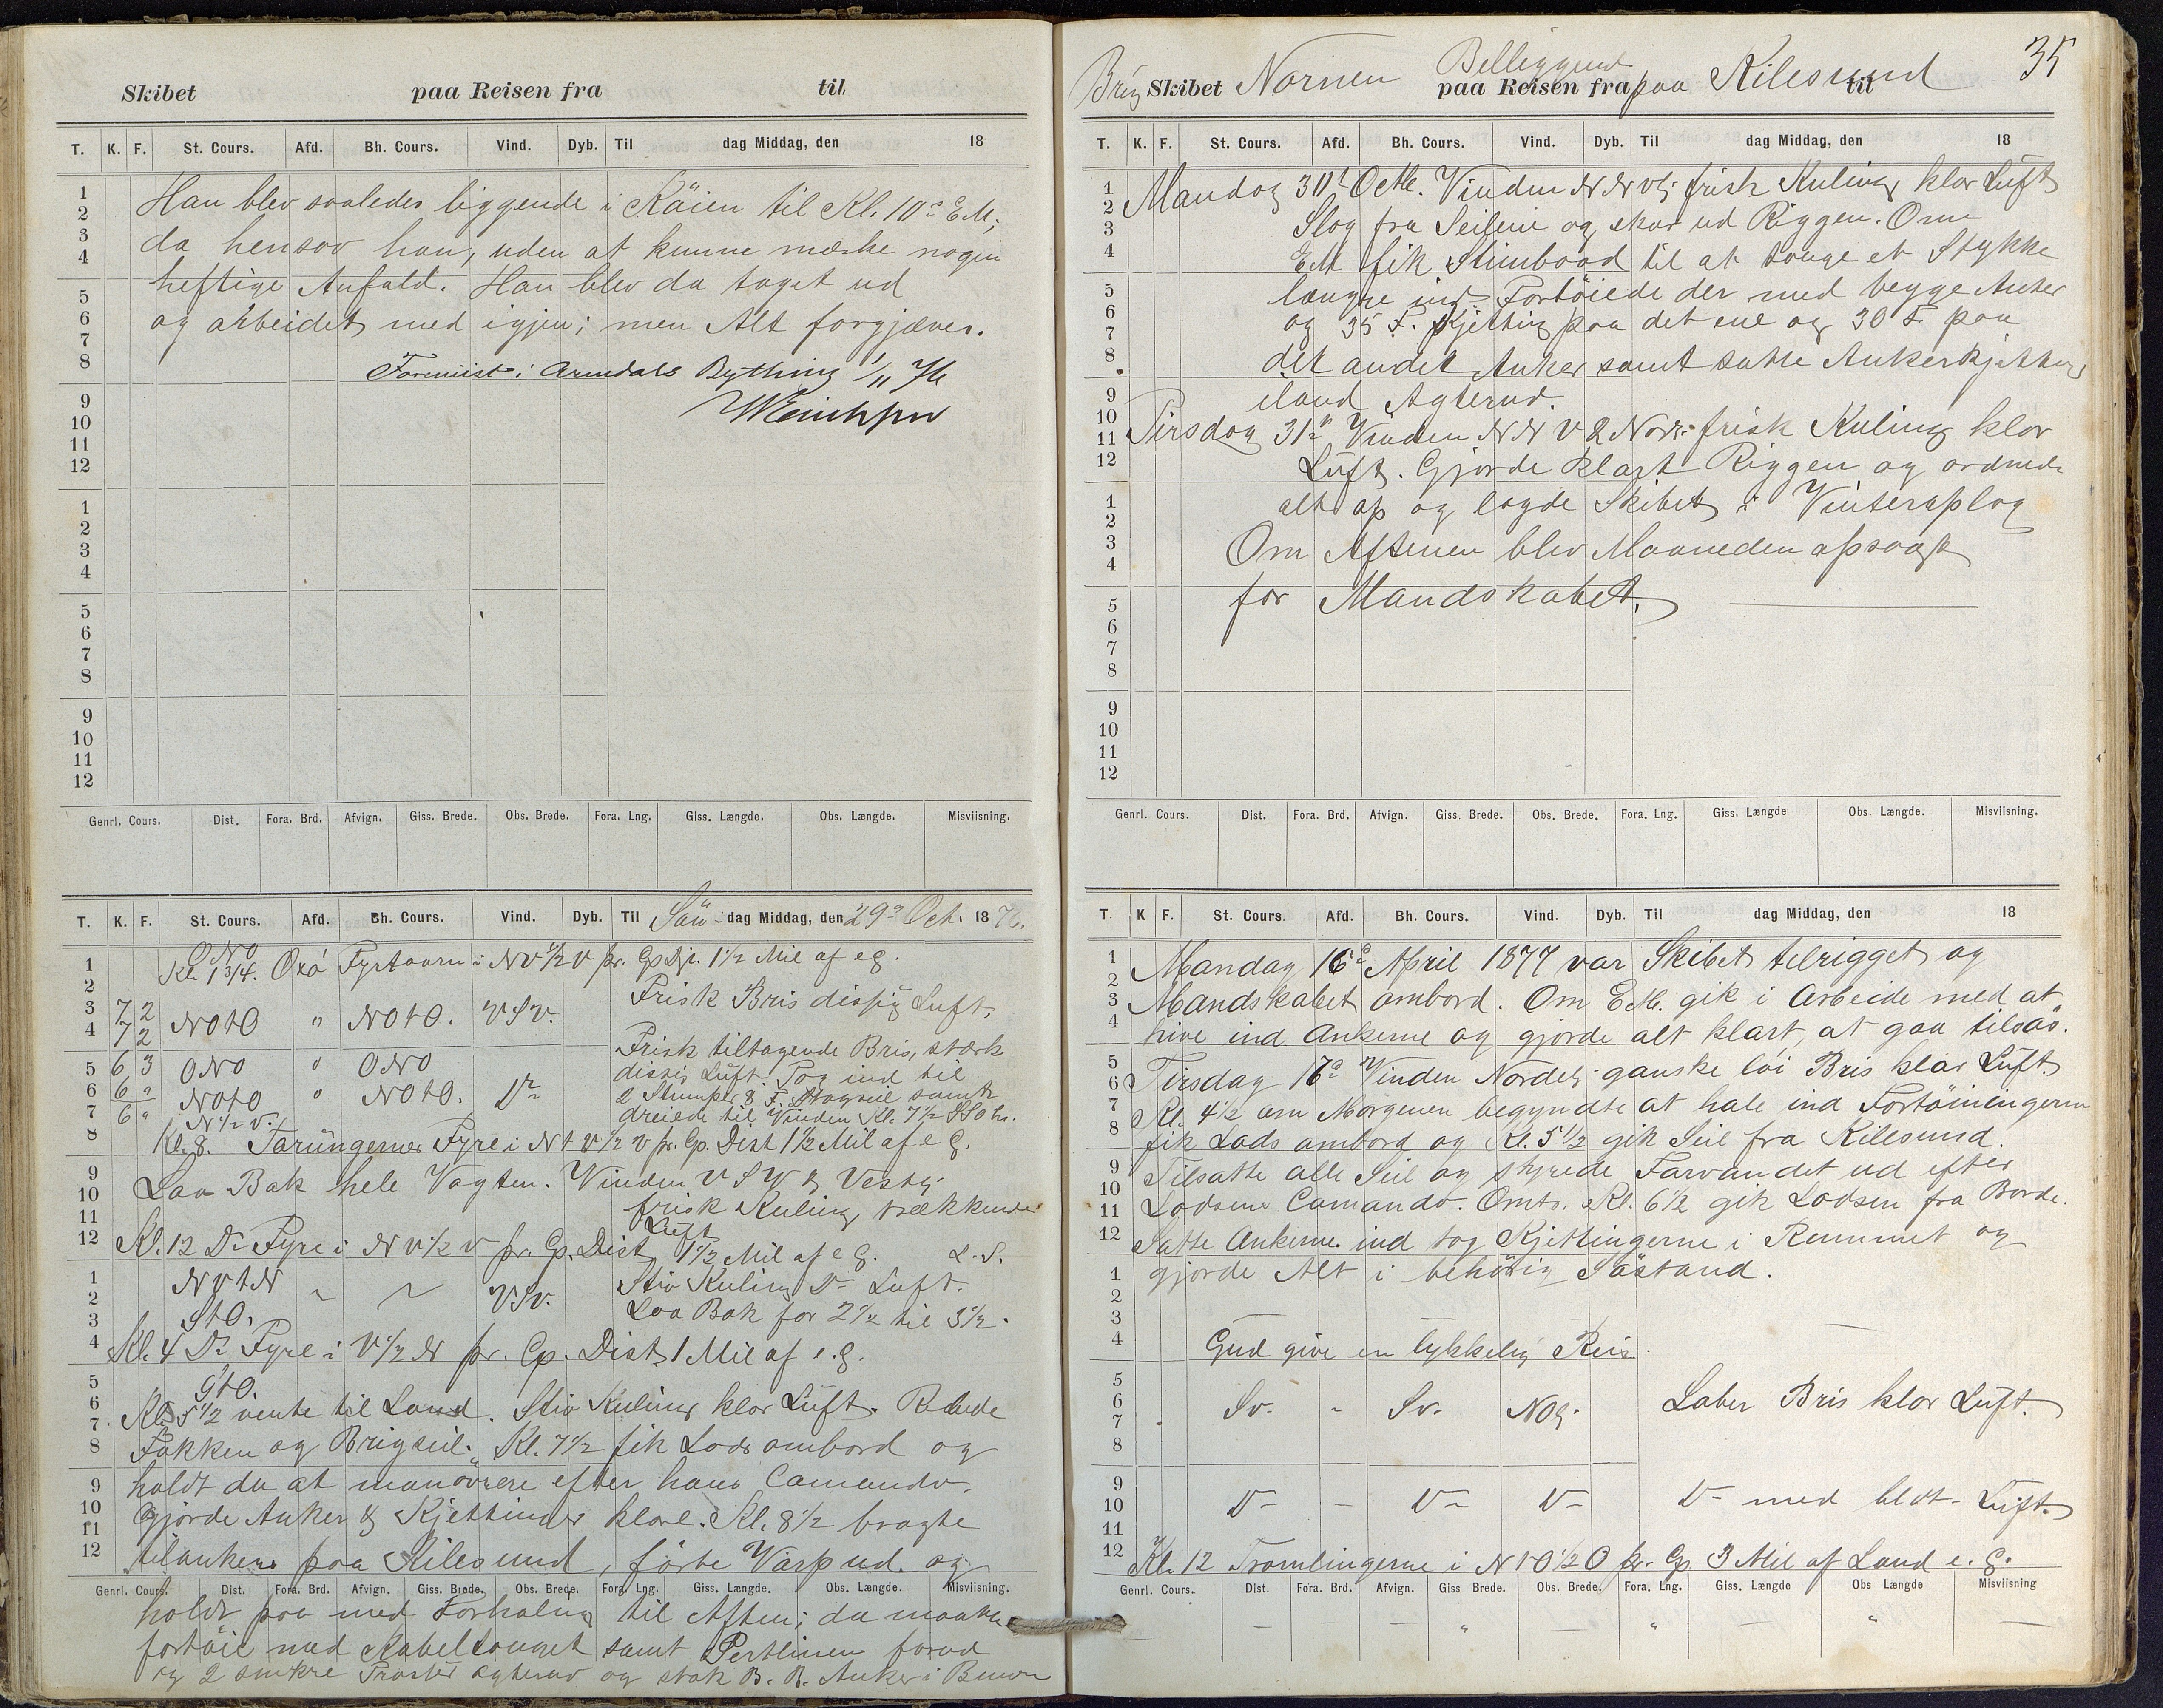 Skibet paa Reisen fra til
T. K. F. St. Cours. Afd. Bh. Cours. Vind. Dyb. Til dag Middag, den 18
1 2 3 4 5 6 7 8 9 10 11 12
1 2 3 4 5 6 7 8 9 10 11 12
Han blev saaledes liggende i Köien til Kl. 10 EM;
da hensov han, uden at kunne mærke nogen
heftige Anfald. Han blev da taget ud
og arbeidet med igjen; men Alt forgjæves.
Foreviist i Arendals Bything 1/11 76
Genrl. Cours. Dist. Fora. Brd. Afvign. Giss. Brede. Obs. Brede. Fora. Lng. Giss. Længde. Obs. Længde. Misviisning.
T. K. F. St. Cours. Afd. Bh. Cours. Vind. Dyb. Til Søn dag Middag, den 29de Oct. 1876.
1 2 3 4 5 6 7 8 9 10 11 12
1 2 3 4 5 6 7 8 9 10 11 12
ONO
Kl. 1 3/4. Oxö Fyrtaarn i NV 1/2 V pr. Cp. 1 1/2 Mil af eg.
Frisk Bris dissig Luft.
7 2
7 2 NOtO " NOtO. VSV.
6 3 ONO " ONO Frisk tiltagende Bris, stærk
dissig Luft. Tog ind til
6 " NOtO " NOtO. Do 2 Stumper & F. Stagseil samt
6 " N 1/2 V. dreiede til Vinden Kl. 7 1/2
Kl. 8. Torungernes Fyre i NtV 1/2 V pr. Cp. Dist 1 1/2 Mil af eg.
Laa Bak hele Vagten. Vinden VSV & Vestlig
frisk Kuling trækkende
Luft
Kl. 12 Do Fyre i NV 1/2 V pr. Cp. Dist 1 1/2 Mil af eg. L. S.
NVtN VSV. Stiv Kuling Do Luft.
StO. Laa Bak for 2 1/2 til 3 1/2.
Kl. 4 Do Fyre i V 1/2 N pr. Cp. Dist 1 Mil af e.g.
Kl. 5 1/2 vente til Land. Stiv Kuling klar Luft. Rebede
Fokken og Brigseil. Kl. 7 1/2 fik Lods ombord og
holdt da at manövrere efter hans Comando.
Gjorde Anker & Kjettinger klare. Kl. 8 1/2 bragte
tilankers paa Kilesund, förte Varp ud og
Genrl. Cours. Dist. Fora. Brd. Afvign. Giss. Brede. Obs. Brede. Fora. Lng. Giss. Længde. Obs. Længde. Misviisning.
holdt paa med Forhaling til Aften; da maatte
fortöie med Kabeltouget samt Pertlinen forud
og 2 smekre Trosser agterud og stak B. B. Anker i Bunden
35
Brig Skibet Nornen Beliggend paa Reisen fra paa Kilesund til
T. K. F. St. Cours. Afd. Bh. Cours. Vind. Dyb. Til dag Middag, den 18
1 2 3 4 5 6 7 8 9 10 11 12
1 2 3 4 5 6 7 8 9 10 11 12
Mandag 30te Octb. Vinden NNVlig frisk Kuling klar Luft
Slog fra Seilene og skar ud Riggen. Om
EM fik Stimbaad til at touge et Stykke
længre ind. Fortöiede der med begge Anker
og 35 F. Kjetting paa det ene og 30 F. paa
det andet Anker samt satte Ankerkjetting
iland Agterud.
Tirsdag 31te Vinden NNV & Nordl. frisk Kuling klar
Luft. Gjorde klart Riggen og ordnede
alt op og lagde Skibet i Vinteroplag
Om Aftenen blev Maaneden opsagt
for Mandskabet.
Genrl. Cours. Dist. Fora. Brd. Afvign. Giss. Brede. Obs. Brede. Fora. Lng. Giss. Længde Obs. Længde. Misviisning.
T. K F. St. Cours. Afd. Bh. Cours. Vind. Dyb. Til dag Middag, den 18
1 2 3 4 5 6 7 8 9 10 11 12
1 2 3 4 5 6 7 8 9 10 11 12
Mandag 16de April 1877 var Skibet tilrigget og
Mandskabet ombord. Om EM. gik i Arbeide med at
hive ind Ankerne og gjorde alt klart, at gaa tilsös.
Tirsdag 17de Vinden Nordlig ganske löi Bris klar Luft.
Kl. 4 1/2 om Morgenen begyndte at hale ind Fortöiningerne
fik Lods ombord og Kl. 5 1/2 gik Seil fra Kilesund.
Tilsatte alle Seil og styrede Farvandet ud efter
Lodsens Comando. Omtr. Kl. 6 1/2 gik Lodsen fra Borde.
Satte Ankerne ind tog Kjettingerne i Rummet og
gjorde Alt i behörig Söstand.
Gud give en lykkelig Reis.
SV. - SV. NOlig. Laber Bris klar Luft.
Do - Do Do Do med blot Luft.
Kl. 12 Tromlingerne i NtO 1/2 O pr. Cp. 3 Mil af Land e. g.
Genrl. Cours. Dist. Fora. Brd. Afvign. Giss Brede. Obs. Brede. Fora. Lng. Giss. Længde Obs Længde Misviisning